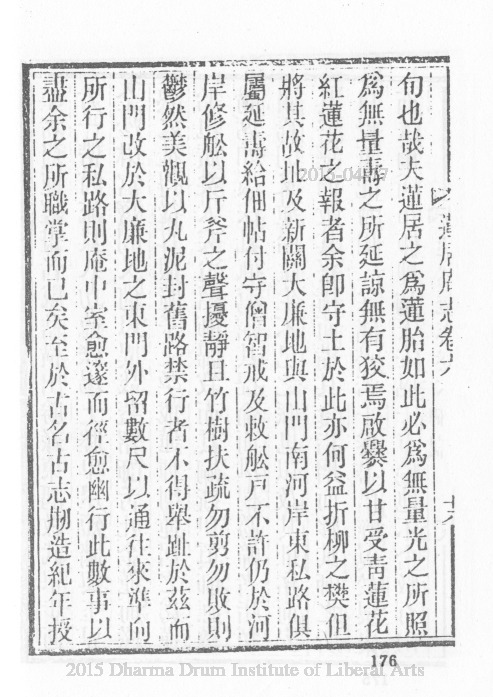 蓮居庵志卷六
十六
句也哉夫蓮居之爲蓮胎如此必爲無量光之所照
爲無量壽之所延諒無有狡焉啟釁以甘受靑蓮花
紅蓮花之報者余卽守土於此亦何益折柳之樊但
將其故址及新關大廉地與山門南河岸東私路俱
屬延壽給佃帖付守僧智戒及敕舩戸不許仍於河
岸修舩以斤斧之聲擾靜且竹樹扶疏勿剪勿敗則
鬱然美觀以丸泥封舊路禁行者不得舉趾於茲而
山門改於大廉地之東門外留數尺以通往來準向
所行之私路則庵中室愈邃而徑愈幽行此數事以
盡余之所職掌而已矣至於古名古志刱造紀年授
176
2015 Dharma Drum Institute of Liberal Arts